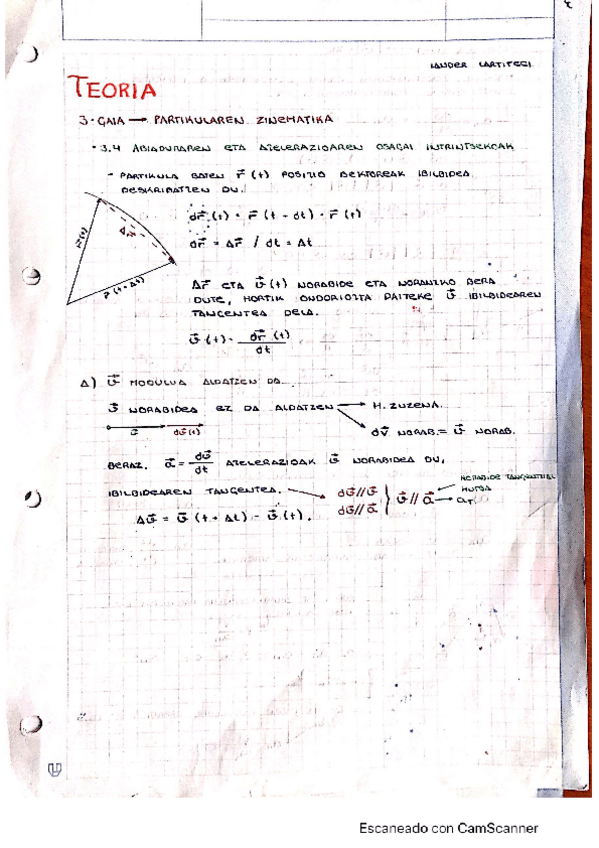 LANDER LARTITEGI
TEORIA
3. GAIA → PARTIKULAREN ZINEMATIKA
· 3.4 ABIADURAREN ETA AZELERAZIOAREN OSAGAI INTRINTSEKOAK
- PARTIKULA BATEN r⃗ (t) POSIZIO BEKTOREAK IBILBIDEA
DESKRIBATZEN DU.
dr⃗ (t) = r⃗ (t - dt) - r⃗ (t)
r⃗(t)
Δr⃗
dr⃗ = Δr⃗ / dt = Δt
r⃗ (t+Δt)
Δr⃗ ETA v⃗ (t) NORABIDE ETA NORANZKO BERA
DUTE, HORTIK ONDORIOZTA DAITEKE v⃗ IBILBIDEAREN
TANGENTEA DELA.
v⃗ (t) = dr⃗ (t) / dt
A) v⃗ MODULUA ALDATZEN DA.
v⃗ NORABIDEA EZ DA ALDATZEN → H. ZUZENA.
v⃗ dv⃗(t)
dv⃗ NORAB. = v⃗ NORAB.
BERAZ. a⃗ = dv⃗ / dt AZELERAZIOAK v⃗ NORABIDEA DU,
IBILBIDEAREN TANGENTEA. → dv⃗ // v⃗
dv⃗ // a⃗ } v⃗ // a⃗ → aT
NORABIDE TANGENTZIAL
HUTSA
Δv⃗ = v⃗ (t + Δt) - v⃗ (t).
Escaneado con CamScanner